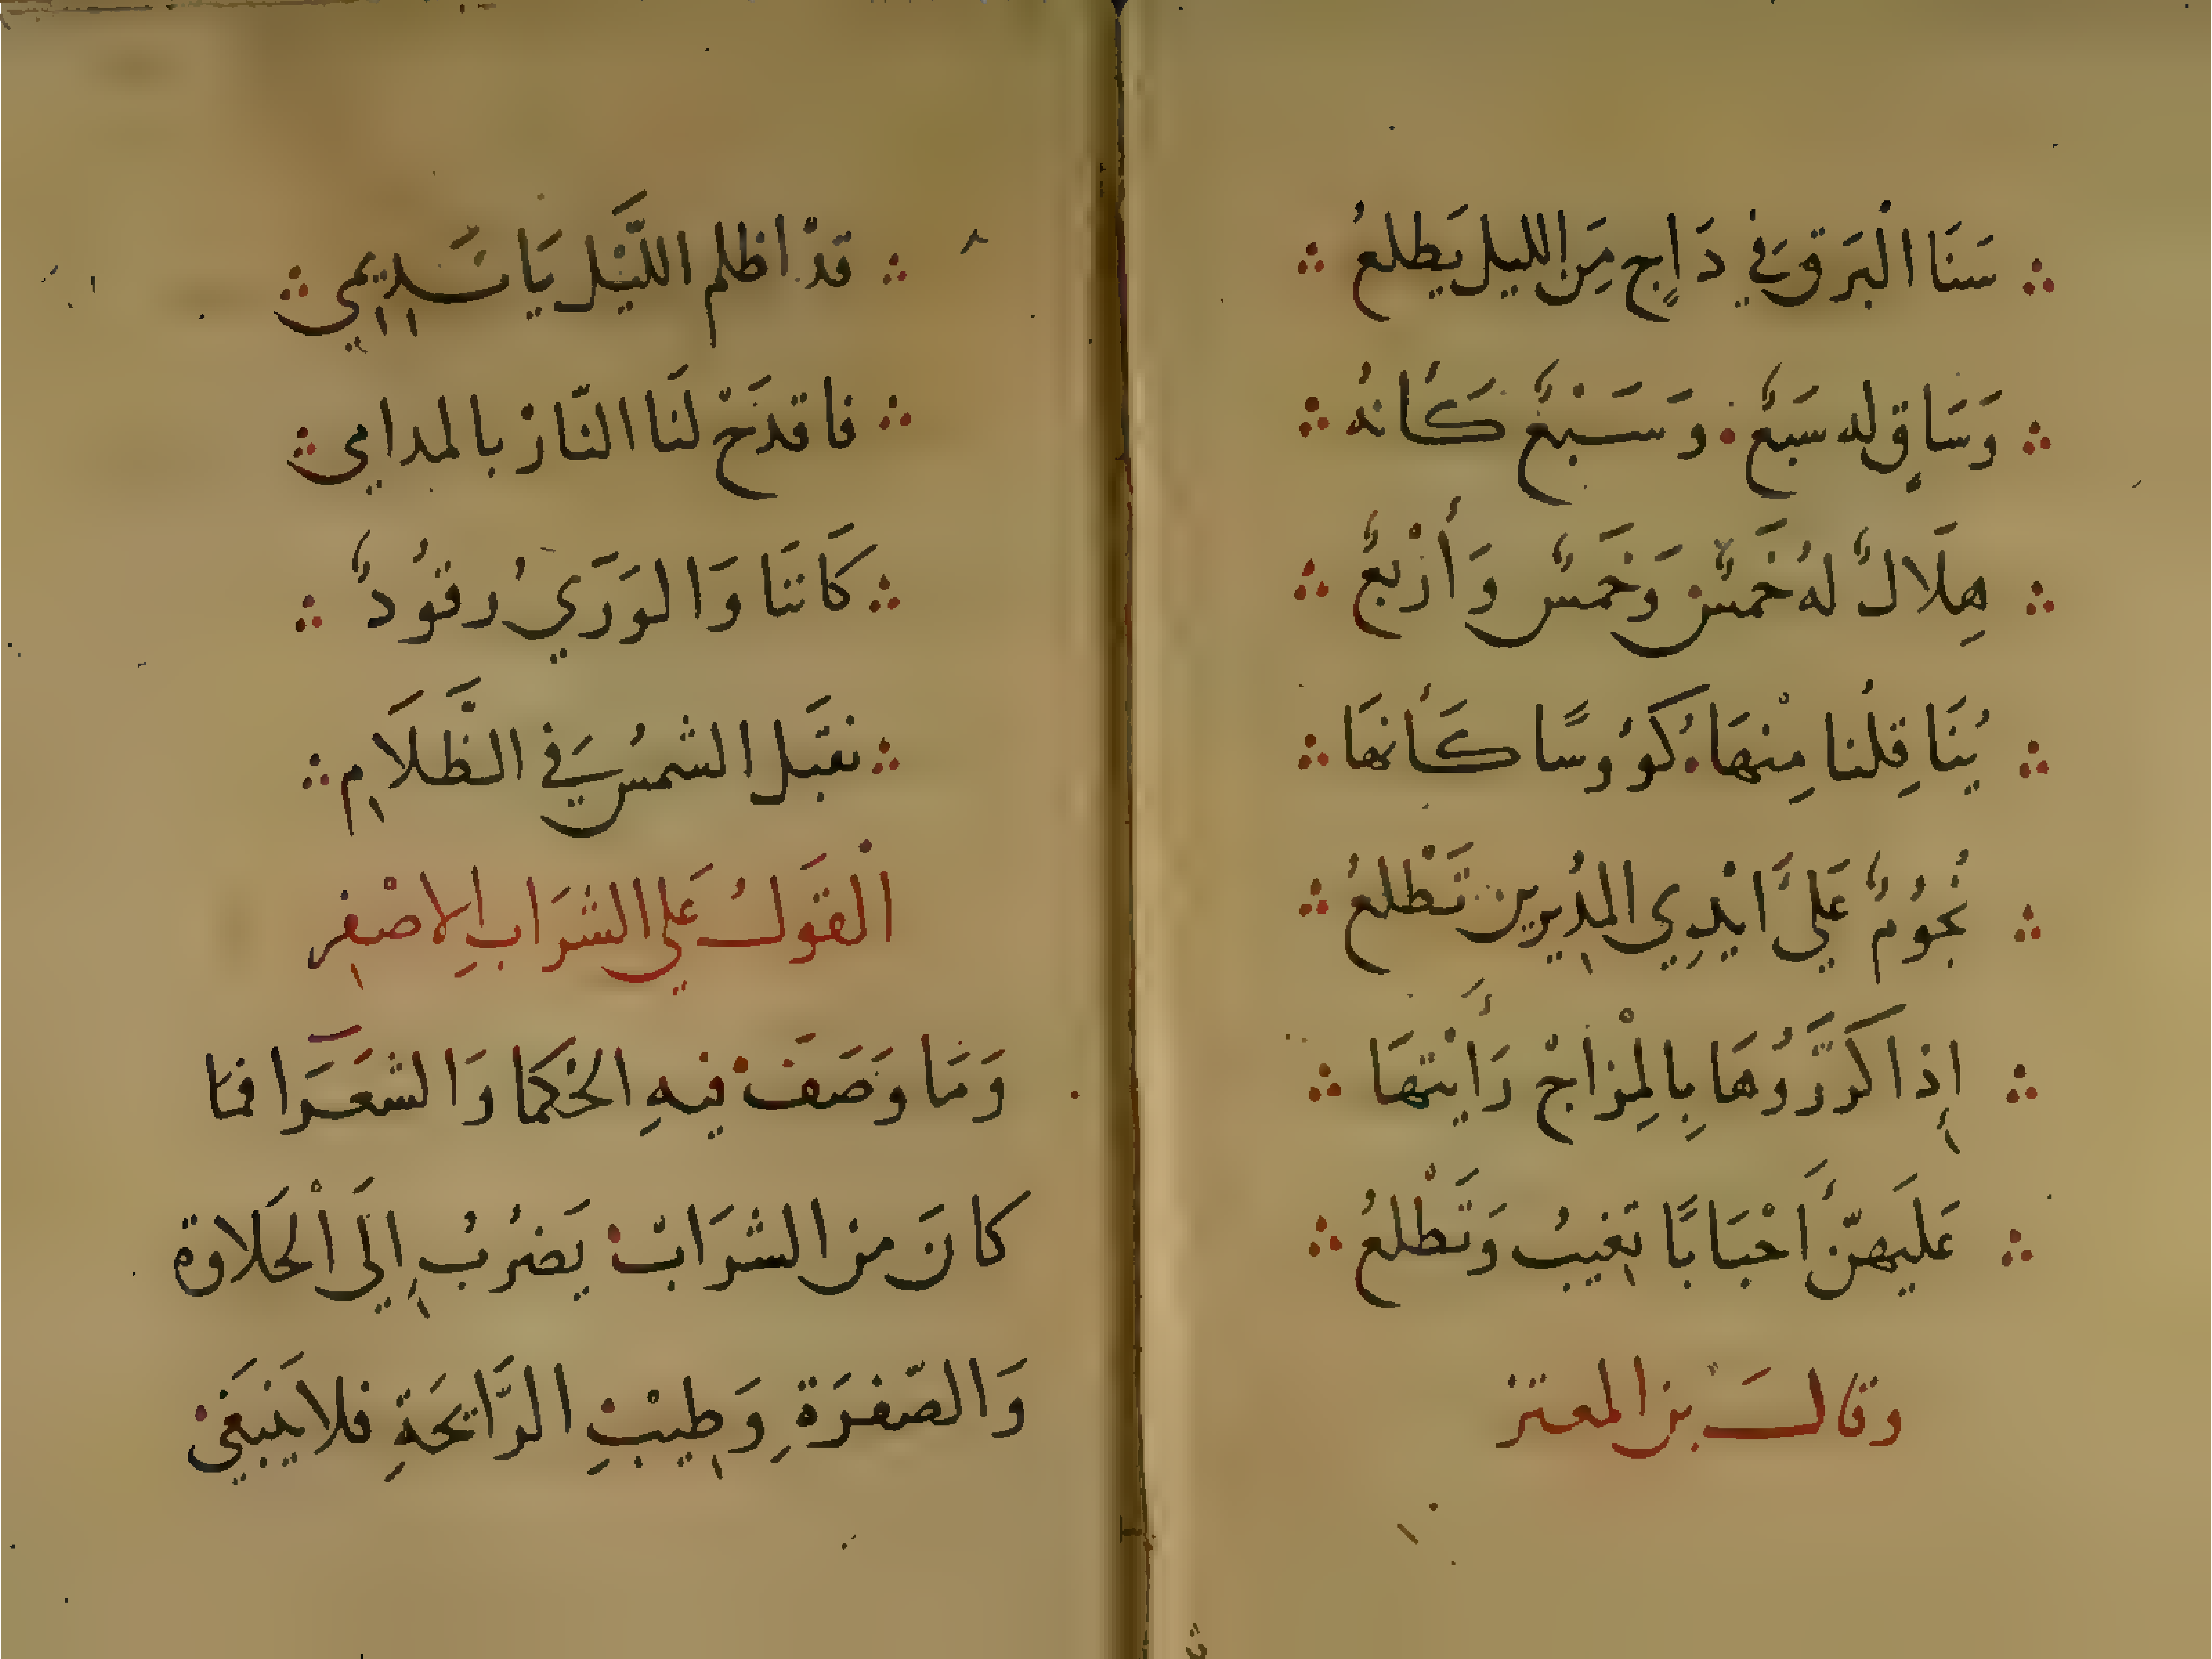 سَنَا الْبَرَقِ فِي دَاجٍ مِنَ الليل يَطلعُ
وَسَاقٍ له سَبعٌ وَسَبْعٌ كَأنهُ
هِلَالٌ لهُ خَمسٌ وَخَمسٌ وَأرْبعٌ
يُنَاقِلُنا مِنْهَا كُوُوسًا كَأنهَا
نُجُومٌ عَليَ ايْدِي المدُيرين تَطْلعُ
إِذا كَرَّرُوُهَا بِالمِزَاجْ رَأيْتهَا
عَليَهنّ أَحْبَابًا تَغيبُ وَتَطْلعُ
وقالَ بن المعتز
قدْ اظلم اللَّيْل يَا نَديمي
فاقدَحْ لنَا النّارْ بالمدامِ
كَاننَا وَالوَرَيُ رقوُدٌ
نقبَّل الشمسُ فِي الظَّلَامِ
الْقَولُ عَلي الشرَابِ الاصْفر
وَمَا وَصَفَ فيهِ الحُكمَا وَالشعَرَا فمَا
كانَ من الشرَابْ يَضرُبُ إِلَي الْحَلاوة
وَالصّفرَةِ وَطِيْبِ الرَّائحَةِ فلا يَنبَغي